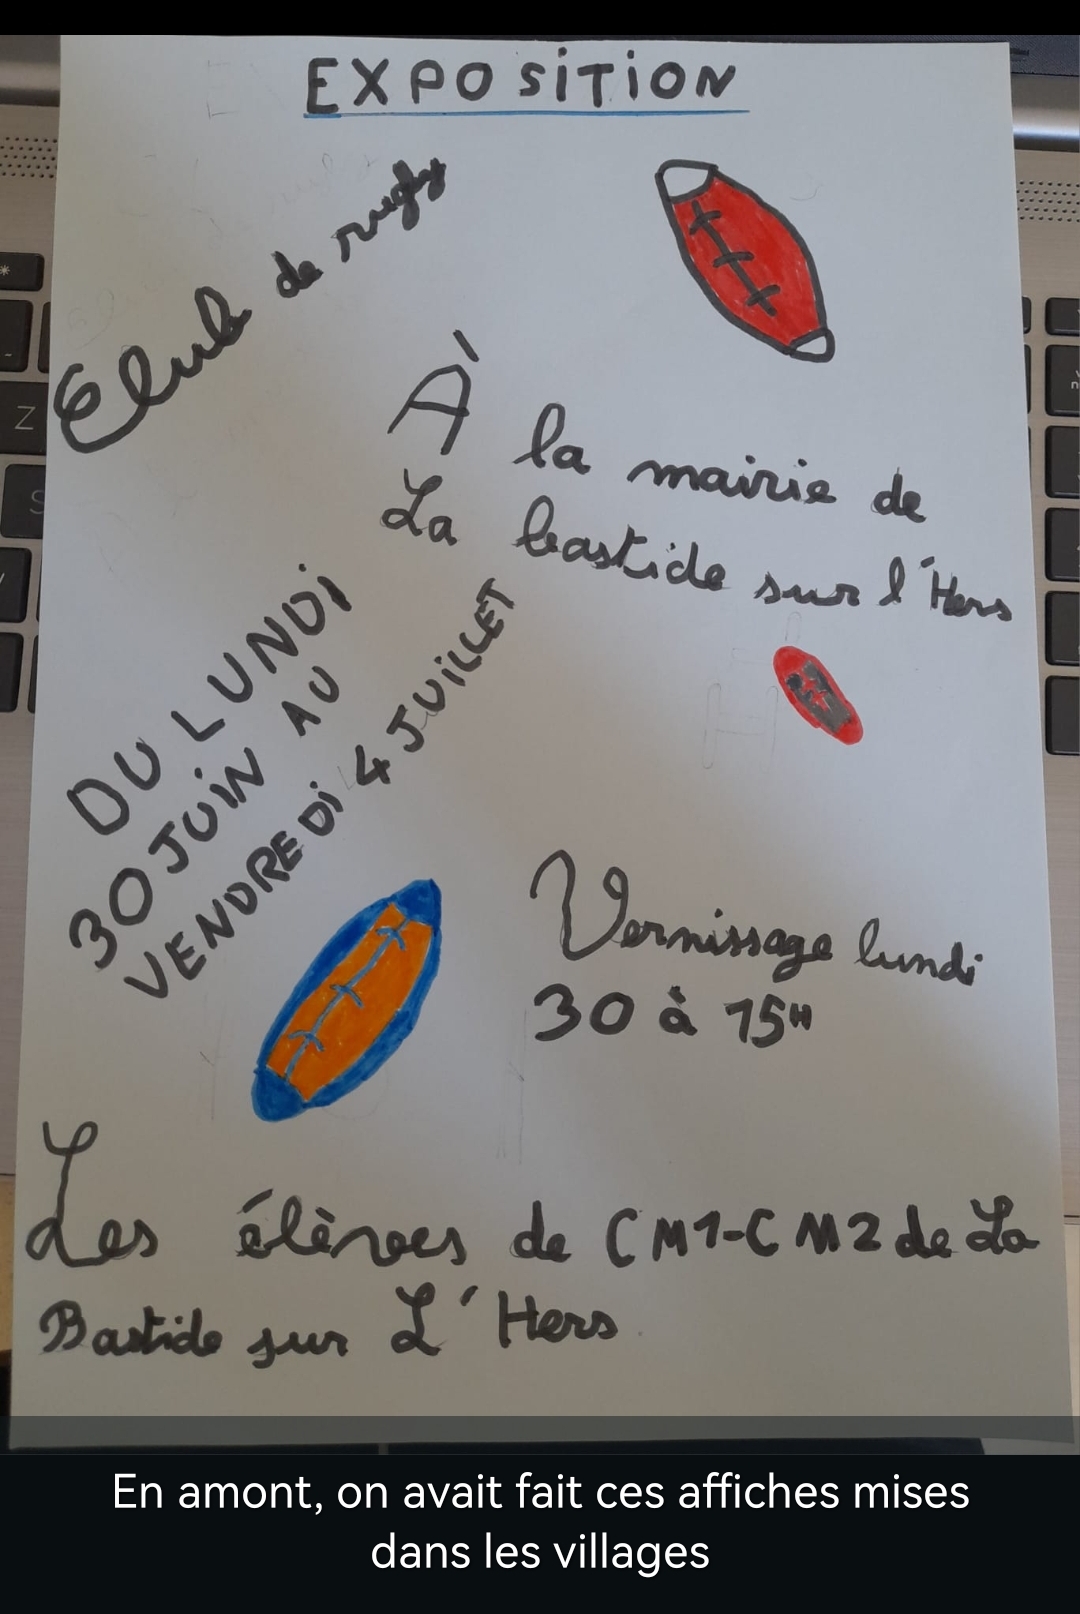 EXPOSITION
Club de rugby
À
la mairie de
La bastide sur l'Hers
DU LUNDI
30 JUIN AU
VENDREDI 4 JUILLET
Vernissage lundi
30 à 15H
Les élèves de CM1-CM2 de La
Bastide sur L'Hers
En amont, on avait fait ces affiches mises
dans les villages